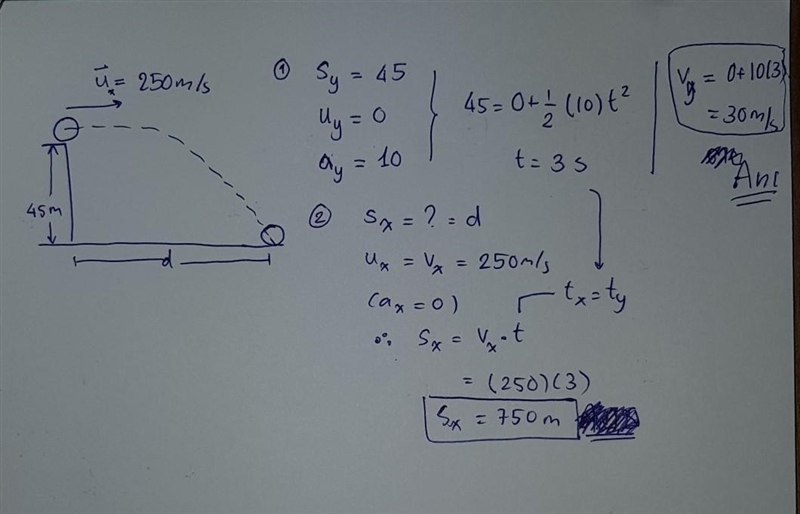 u⃗ₓ = 250 m/s
45m
d
① Sy = 45
uy = 0
ay = 10
45 = 0 + 1/2 (10) t²
t = 3 s
Vy = 0 + 10(3)
= 30 m/s
Ans
② Sx = ? = d
ux = vx = 250 m/s
(ax = 0)
tx = ty
∴ Sx = Vx · t
= (250)(3)
Sx = 750 m